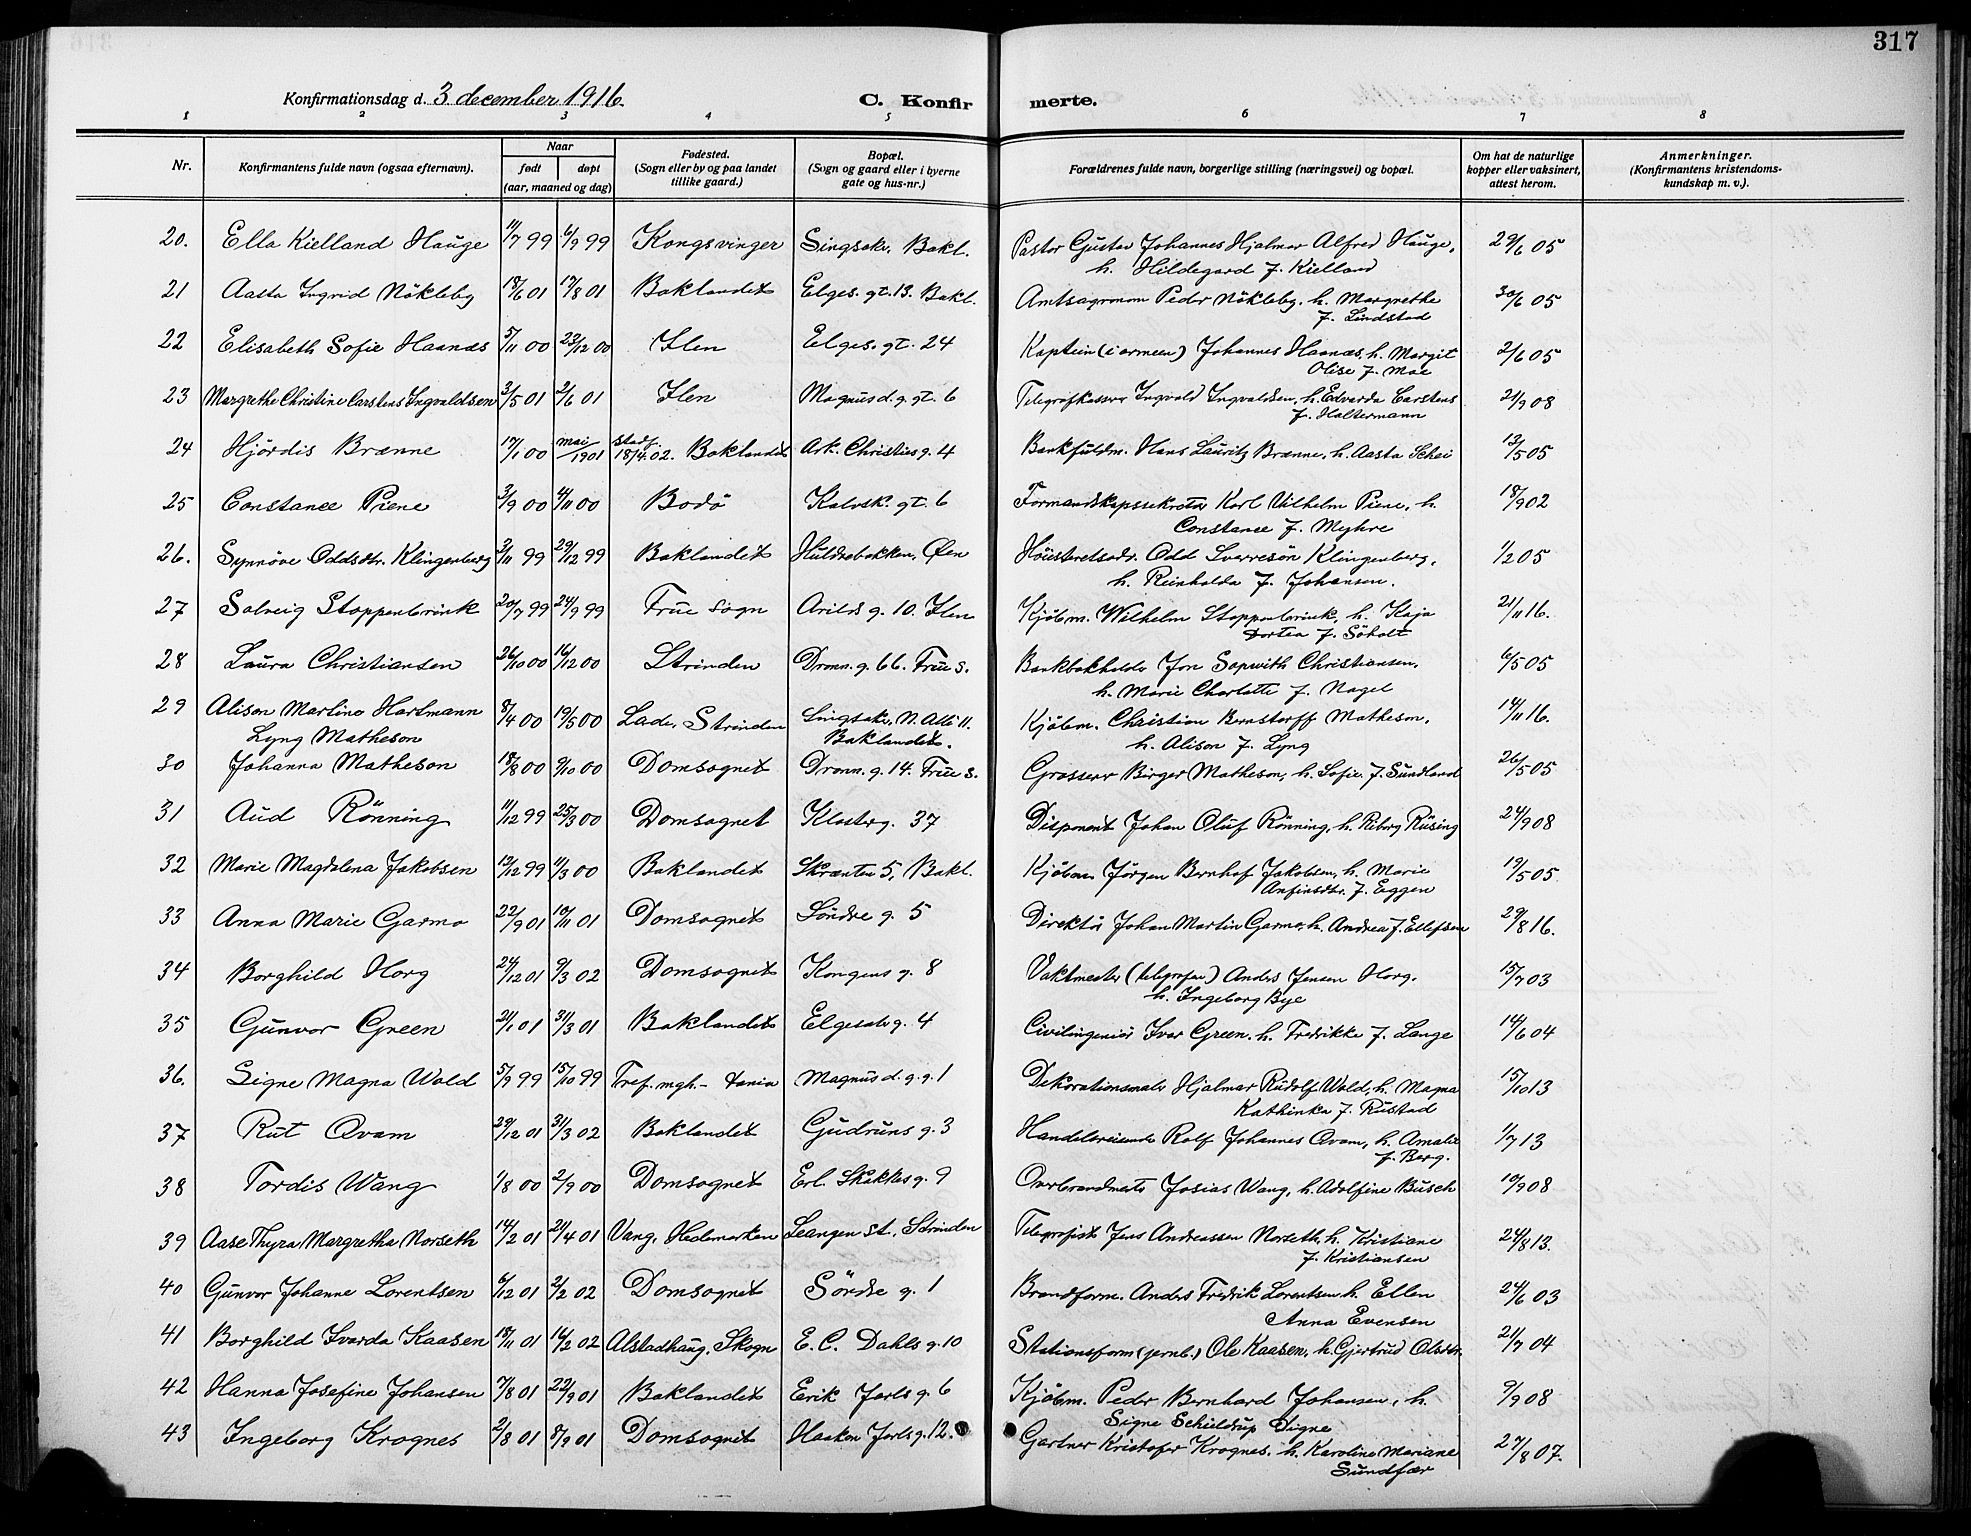 317
Konfirmationsdag d. 3 december 1916.
C. Konfir merte.
1 2 3 4 5 6 7 8
Nr. Konfirmantens fulde navn (ogsaa efternavn). Naar født døpt (aar, maaned og dag) Fødested. (Sogn eller by og paa landet tillike gaard.) Bopæl. (Sogn og gaard eller i byerne gate og hus-nr.) Forældrenes fulde navn, borgerlige stilling (næringsvei) og bopæl. Om hat de naturlige kopper eller vaksinert, attest herom. Anmerkninger. (Konfirmantens kristendoms-kundskap m. v.).
20. Ella Kielland Hauge 11/7 99 6/9 99 Kongsvinger Singsakr. Bakl. Pastor Gustav Johannes Hjalmar Alfred Hauge, 29/6 05
h. Hildegard f. Kielland
21 Aasta Ingrid Nökleby 18/6 01 17/8 01 Baklandet Elges. gt. 13. Bakl. Amtsagronom Peder Nökleby, h. Margrethe 30/6 05
f. Lindstad
22 Elisabeth Sofie Haanæs 5/11 00 23/12 00 Ilen Elges. gt. 24 Kaptein (i armeen) Johannes Haanæs, h. Margit 2/6 05
Olise f. Moe
23 Margrethe Christine Carstens Ingvaldsen 3/5 01 2/6 01 Ilen Magnus d. g. gt. 6 Telegrafkasser Ingvald Ingvaldsen, h. Edvarda Carstens 21/9 08
f. Haltermann
24 Hjördis Brænne 17/1 00 mai/1901 stadf. 18/4 02. Baklandet Ark. Christies g. 4 Bankfuldm. Hans Lauritz Brænne, h. Aasta Schei 13/5 05
25 Constance Piene 3/9 00 4/11 00 Bodö Kalvsk. gt. 6 Formandskapssekretær Karl Vilhelm Piene, h. 18/9 02
Constance f. Myhre
26. Synnöve Oddsdtr. Klingenberg 3/11 99 29/12 99 Baklandet Huldrebakken, Øen Höiesteretsadv. Odd Sverresön Klingenberg, 1/2 05
h. Reinholda f. Johansen.
27 Solveig Stoppenbrink 20/7 99 24/9 99 Frue sogn Arilds g. 10. Ilen Kjöbm. Wilhelm Stoppenbrink, h. Kaja 21/11 16.
Dortea f. Söholt
28 Laura Christiansen 26/10 00 16/12 00 Strinden Dronn. g. 66. Frue s. Bankbokholder Jon Sopwith Christiansen, 6/5 05
h. Marie Charlotte f. Nagel
29 Alison Martine Hartmann 8/4 00 19/5 00 Lade, Strinden Singsakr. N. Allé 11. Kjöbm. Christian Bernstorff Matheson, 14/11 16.
Lyng Matheson Baklandet. h. Alison f. Lyng
30 Johanna Matheson 18/8 00 9/10 00 Domsognet Dronn. g. 14. Frue s. Grosserer Birger Matheson, h. Sofie f. Sundland 26/5 05
31 Aud Rönning 11/12 99 25/3 00 Domsognet Klosterg. 37 Disponent Johan Oluf Rönning, h. Riborg Rüsing 24/9 08
32 Marie Magdalena Jakobsen 13/12 99 11/3 00 Baklandet Skrænten 5, Bakl. Kjöbm. Jörgen Bernhof Jakobsen, h. Marie 19/5 05.
Anfinsdtr. f. Eggen
33 Anna Marie Garmo 22/9 01 10/11 01 Domsognet Söndre g. 5 Direktör Johan Martin Garmo, h. Andrea f. Ellefsen 29/8 16.
34 Borghild Horg 24/12 01 9/3 02 Domsognet Kongens g. 8 Vaktmester (telegrafen) Anders Jensen Horg. 15/7 03
h. Ingeborg Bye
35 Gunvor Green 21/1 01 31/3 01 Baklandet Elgesetr g. 4 Civilingeniör Ivar Green. h. Fredrikke f. Lange 14/6 04
36. Signe Magna Wold 5/9 99 15/10 99 Tref. mgh. - tania Magnus d. g. g. 1 Dekorationsmaler Hjalmar Rudolf Wold, h. Magna 15/10 13
Kathinka f. Rustad
37 Rut Qvam 29/12 01 31/3 02 Baklandet Gudruns g. 3 Handelsreisende Rolf Johannes Qvam, h. Amalie 1/7 13
f. Berg.
38 Tordis Wang 1/8 00 2/9 00 Domsognet Erl. Skakkes g. 9 Overbrandmester Josias Wang, h. Adolfine Busch 10/9 08
39 Aase Thyra Margretha Norseth 14/2 01 21/4 01 Vang, Hedemarken Leangen st., Strinden Telegrafist Jens Andreassen Norseth, h. Kristiane 24/8 13.
f. Kristiansen
40 Gunvor Johanne Lorentsen 6/12 01 2/2 02 Domsognet Söndre g. 1 Brandform. Anders Fredrik Lorentsen h. Ellen 24/6 03
Anna Evensen
41 Borghild Ivarda Kaasen 18/11 01 16/2 02 Alstadhaug, Skogn E. C. Dahls g. 10 Stationsform (jernb.) Ole Kaasen, h. Gjertrud Olsdtr. 21/7 04
42 Hanna Josefine Johansen 7/8 01 22/9 01 Baklandet Erik Jarls g. 6 Kjöbm. Peder Bernhard Johansen, h. 9/9 08
Signe Schieldrup Digne
43 Ingeborg Krognes 2/8 01 8/9 01 Domsognet Haakon Jarls g. 12. Gartner Kristofer Krognes. h. Karoline Mariane 27/8 07.
Sundfær